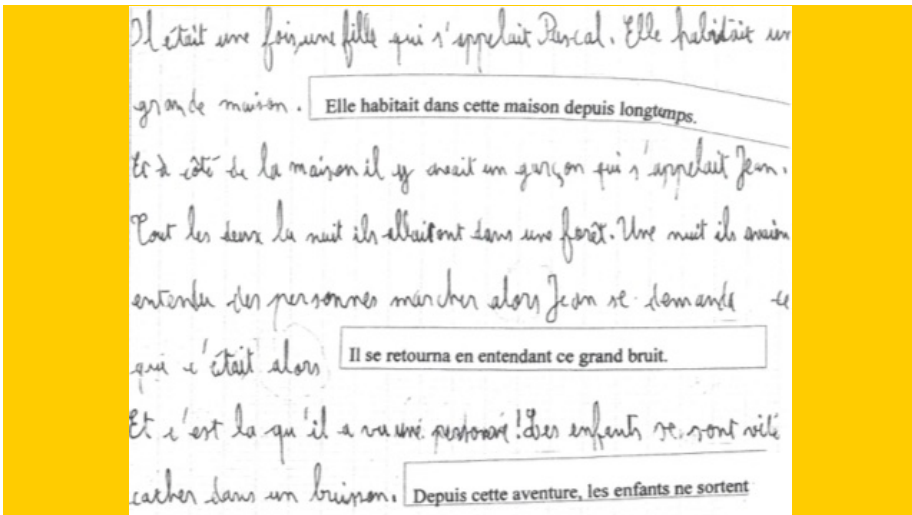 Il était une fois, une fille qui s'appelait Pascal. Elle habitait un
grande maison. Elle habitait dans cette maison depuis longtemps.
Et à côté de la maison il y avait un garçon qui s'appelait Jean.
Tout les deux la nuit ils allaitont dans une forêt. Une nuit ils avaien
entendu des personnes marcher alors Jean se demanda ce
qui c'était alors Il se retourna en entendant ce grand bruit.
Et c'est la qu'il a vu une personne ! Les enfants se sont vite
cacher dans un buisson. Depuis cette aventure, les enfants ne sortent